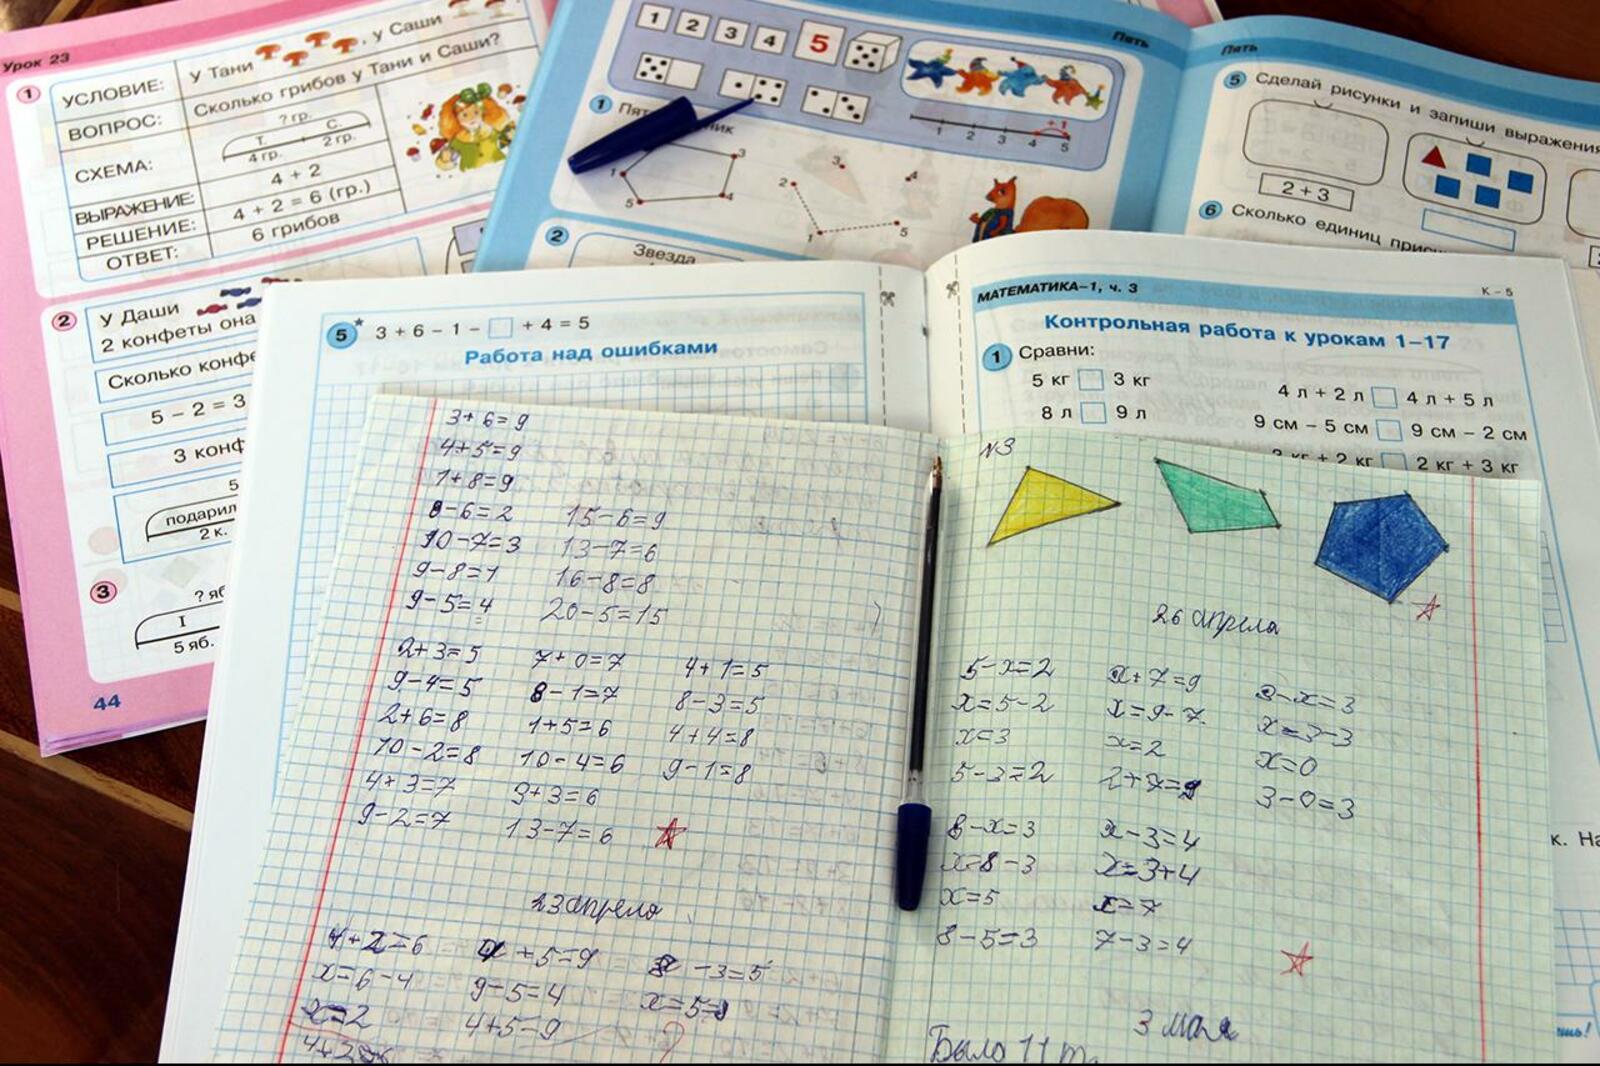 Урок 23
1
УСЛОВИЕ: У Тани , у Саши
ВОПРОС: Сколько грибов у Тани и Саши?
СХЕМА: ? гр.
Т. С.
4 гр. 2 гр.
ВЫРАЖЕНИЕ: 4 + 2
РЕШЕНИЕ: 4 + 2 = 6 (гр.)
ОТВЕТ: 6 грибов
2
У Даши
2 конфеты она
Сколько конфе
5 – 2 = 3
3 конф
5
подарил
2 к.
3
? яб
I
5 яб.
44
Пять
1 2 3 4 5
1 2 3 4 5
+1
1
1 3 4 5
2 3 4 1 5
2
Звезда
Пять
5 Сделай рисунки и запиши выражения
2 + 3
6 Сколько единиц
5* 3 + 6 – 1 – + 4 = 5
Работа над ошибками
МАТЕМАТИКА–1, ч. 3
К – 5
Контрольная работа к урокам 1–17
1 Сравни:
5 кг 3 кг 4 л + 2 л 4 л + 5 л
8 л 9 л 9 см – 5 см 9 см – 2 см
3 кг + 2 кг 2 кг + 3 кг
3+6=9
4+5=9
1+8=9
8-6=2 15-6=9
10-7=3 13-7=6
9-8=1 16-8=8
9-5=4 20-5=15
2+3=5 7+0=7 4+1=5
9-4=5 8-1=7 8-3=5
2+6=8 1+5=6 4+4=8
10-2=8 10-4=6 9-1=8
4+3=7 3+3=6
9-2=7 13-7=6
23 апреля
4+x=6 x+5=9 -3=5
x=6-4 9-5=4
x=2 4+5=9
№3
26 апреля
5-x=2 x+7=9 3-x=3
x=5-2 x=9-7 x=3-3
x=3 x=2 x=0
5-3=2 2+7=9 3-0=3
8-x=3 x-3=4
x=8-3 x=3+4
x=5 x=7
8-5=3 7-3=4
3 мая
Было 11 т.
к. На